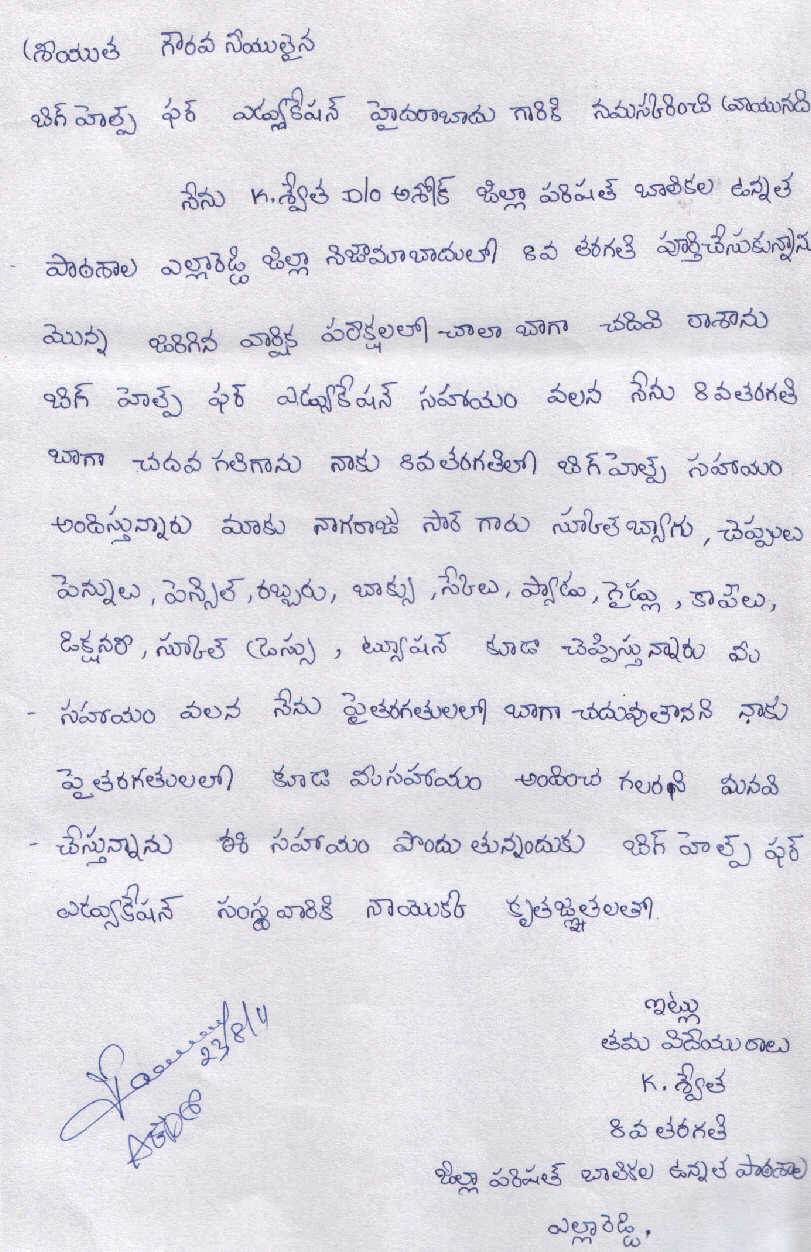 శ్రీయుత గౌరవ నీయులైన
బిగ్ హెల్ప్ ఫర్ ఎడ్యుకేషన్ హైదరాబాదు గారికి నమస్కరించి వ్రాయునది
నేను K. శ్వేత D/o అశోక్ జిల్లా పరిషత్ బాలికల ఉన్నత
పాఠశాల ఎల్లారెడ్డి జిల్లా నిజామాబాదులో 8వ తరగతి పూర్తిచేసుకున్నాను
మొన్న జరిగిన వార్షిక పరీక్షలలో చాలా బాగా చదివి రాశాను
బిగ్ హెల్ప్ ఫర్ ఎడ్యుకేషన్ సహాయం వలన నేను 8వతరగతి
బాగా చదవ గలిగాను నాకు 8వతరగతిలో బిగ్ హెల్ప్ సహాయం
అందిస్తున్నారు మాకు నాగరాజు సార్ గారు స్కూల్ బ్యాగు, చెప్పులు
పెన్నులు, పెన్సిల్, రబ్బరు, బాక్సు, స్కేలు, ప్యాడు, గైడ్లు, కాపీలు,
డిక్షనరీ, స్కూల్ డ్రెస్సు, ట్యూషన్ కూడా చెప్పిస్తున్నారు మీ
సహాయం వలన నేను పైతరగతులలో బాగా చదువుతానని నాకు
పైతరగతులలో కూడా మీసహాయం అందించ గలరని మనవి
చేస్తున్నాను ఈ సహాయం పొందు తున్నందుకు బిగ్ హెల్ప్ ఫర్
ఎడ్యుకేషన్ సంస్థ వారికి నాయొక్క కృతజ్ఞతలతో.
ఇట్లు
తమ విదేయురాలు
K. శ్వేత
8వ తరగతి
జిల్లా పరిషత్ బాలికల ఉన్నత పాఠశాల
ఎల్లారెడ్డి.
23/8/11